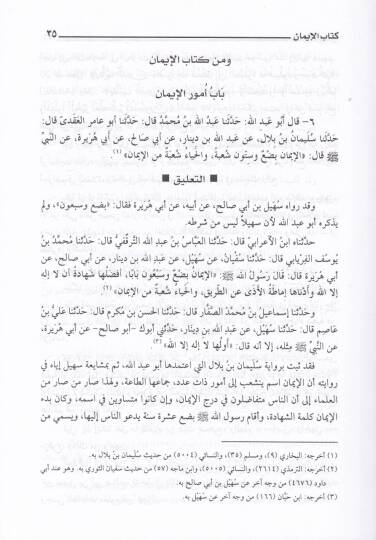 كتاب الإيمان ٣٥
ومن كتاب الإيمان
بَابُ أُمور الإيمان
٦- قال أبو عبد الله: حَدَّثَنا عَبدُ الله بنُ مُحمَّدٍ قال: حَدَّثَنا أبو عامر العَقَديّ قال:
حَدَّثَنا سُلَيمانُ بنُ بلال، عن عَبد الله بن دينار، عن أبي صالح، عن أبي هُرَيرة، عن النَّبيِّ
ﷺ قال: «الإيمان بِضْعٌ وستُّون شُعْبَةً، والحَيَاءُ شُعْبَةٌ من الإيمَانِ» (١).
■ التعليق ■
وقد رواه سُهَيل بن أبي صالح، عن أبيه، عن أبي هُرَيرة فقال: «بضع وسبعون»، ولم
يذكره أبو عبد الله لأن سهيلًا ليس من شرطه.
حدَّثناه ابنُ الأعرابيِّ قال: حَدَّثَنا العبَّاسُ بنُ عبد الله التَّرقُفيُّ قال: حَدَّثَنا مُحمَّدُ بنُ
يُوسُف الفِريابي قال: حدَّثَنا سُفْيَانُ، عن سُهَيْل، عن عَبد الله بن دينار، عن أبي صالح، عن
أبي هُرَيرة قال: قال رَسولُ الله ﷺ: «الإيمانُ بِضْعٌ وسَبْعُون بَابًا، أفضلُها شَهادةُ أن لا إله
إلا الله وأدْناها إماطَةُ الأذَى عن الطَّريق، والحَيَاءُ شُعْبَةٌ من الإيمَانِ» (٢).
وحَدَّثَنا إسماعيلُ بنُ مُحمَّدٍ الصَّفَّار قال: حَدَّثَنا الحسن بن مُكرم قال: حَدَّثَنا عَليُّ بنُ
عَاصِم قال: حَدَّثَنا سُهَيْل، عن عَبد الله بن دِينَار، حدَّثني أبوك -أبو صالح- عن أبي هُرَيرة،
عن النَّبيِّ ﷺ مِثله، إلا أنه قال: «أولُها لا إله إلا الله» (٣).
فقد ثبت برواية سُلَيمان بنُ بلال التي اعتمدها أبو عبد الله، ثم بمشايعة سهيل إياه في
روايته أن الإيمان اسم ينشعب إلى أمور ذات عدد، جماعها الطاعة، ولهذا صار من صار من
العلماء إلى أن الناس متفاضلون في درج الإيمان، وإن كانوا متساوين في اسمه، وكان بدء
الإيمان كلمة الشهادة، وأقام رسول الله ﷺ بضع عشرة سنة يدعو الناس إليها، ويسمي من
(١) أخرجه: البخاري (٩)، ومسلم (٣٥)، والنسائي (٥٠٠٤) من حديث سليمان بنُ بلال به.
(٢) أخرجه: الترمذي (٢٦١٤)، والنسائي (٥٠٠٥)، وابن ماجه (٥٧) من حديث سفيان الثوري به. وهو عند أبي
داود (٤٦٧٦) من وجه آخر عن سُهَيْل بن أبي صالح به.
(٣) أخرجه: ابن حبَّان (١٦٦) من وجه آخر عن سُهَيْل به.